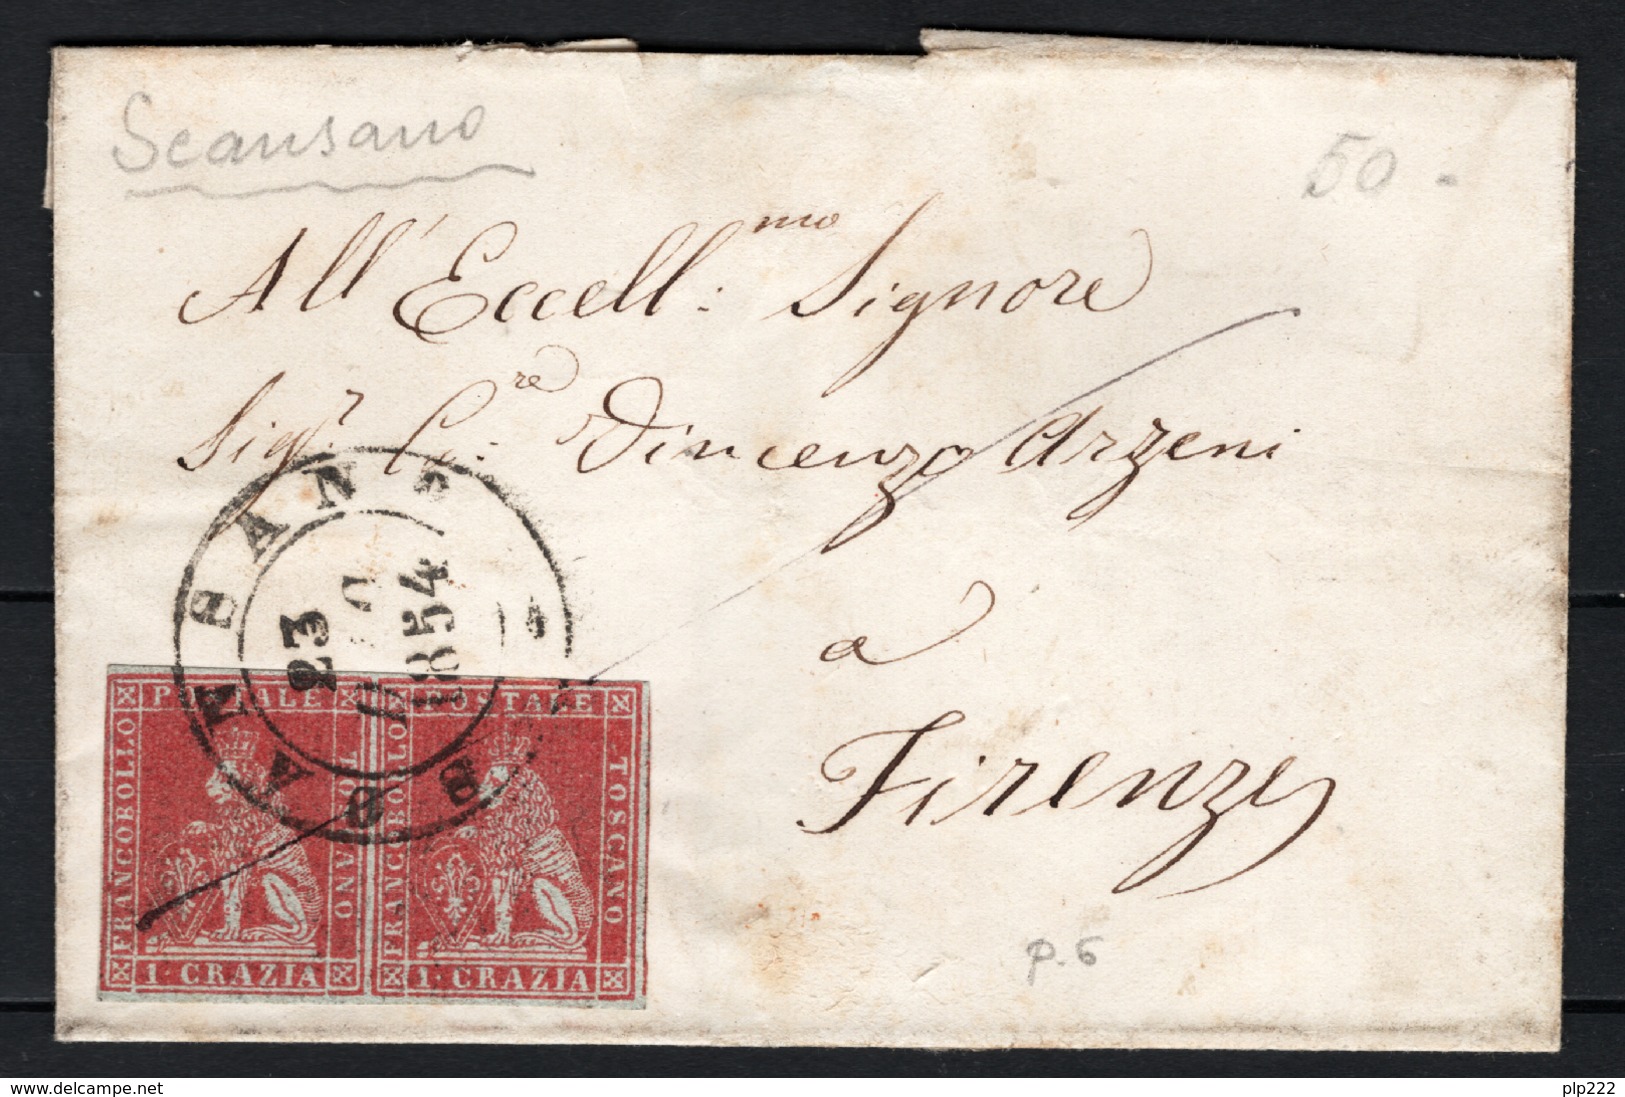 Scansano
50 -
All' Eccell:mo Signore
Sigr. C:re Vincenzo Arzeni
a
Firenze
23
1854
FRANCOBOLLO POSTALE TOSCANO
1. CRAZIA
FRANCOBOLLO POSTALE TOSCANO
1. CRAZIA
p. 6
www.delcampe.net
plp222